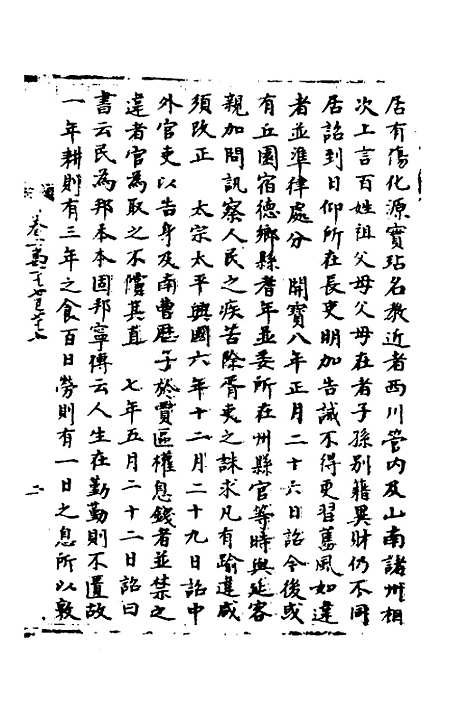 居有傷化源實玷名教近者西川管内及山南諸州相
次上言百姓祖父母父母在者子孫別籍異財仍不同
居詔到日仰所在長吏明加告誡不得更習舊風如違
者並準律處分　開寶八年正月二十六日詔今後或
有丘園宿德鄉縣耆年並委所在州縣官等時與延容
親加問訊察人民之疾苦除胥吏之誅求凡有踰違咸
須改正　太宗太平興國六年十二月二十九日詔中
外官吏以告身及南曹歷子於賈區權息錢者並禁之
違者官為取之不償其直　七年五月二十二日詔曰
書云民為邦本本固邦寧傳云人生在勤勤則不匱故
一年耕則有三年之食百日勞則有一日之息所以敦
二